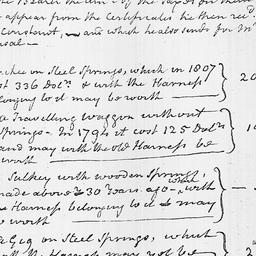 appear from the Certificates he then rec.d
and which he also sends for
chee on Steel Springs, which in 1807
st 336 Dol.rs & with the Harness
elonging to it may be worth
a Travelling Waggon without
Springs - In 1794 it cost 125 Dol.rs
and may with the old Harness be
worth
Sulkey with wooden Springs,
made above 30 Years ago - which with
Harness belonging to it may
worth
a Gig on Steel Springs, which
Harness may not be